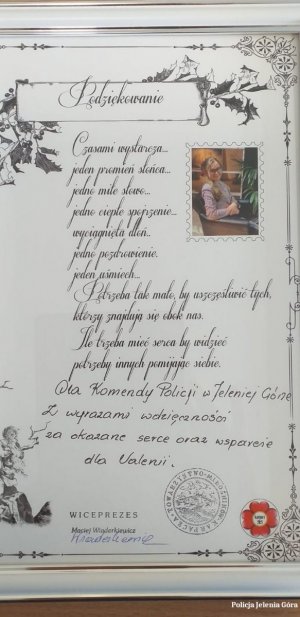 Podziękowanie
Czasami wystarcza...
jeden promień słońca...
jedno miłe słowo...
jedno ciepłe spojrzenie...
wyciągnięta dłoń...
jedno pozdrowienie.
jeden uśmiech...
Potrzeba tak mało, by uszczęśliwić tych,
którzy znajdują się obok nas.
Ile trzeba mieć serca by widzieć
potrzeby innych pomijając siebie.
Dla Komendy Policji w Jeleniej Górze
Z wyrazami wdzięczności
za okazane serce oraz wsparcie
dla Valerii.
WICEPREZES
Maciej
Policja Jelenia Góra